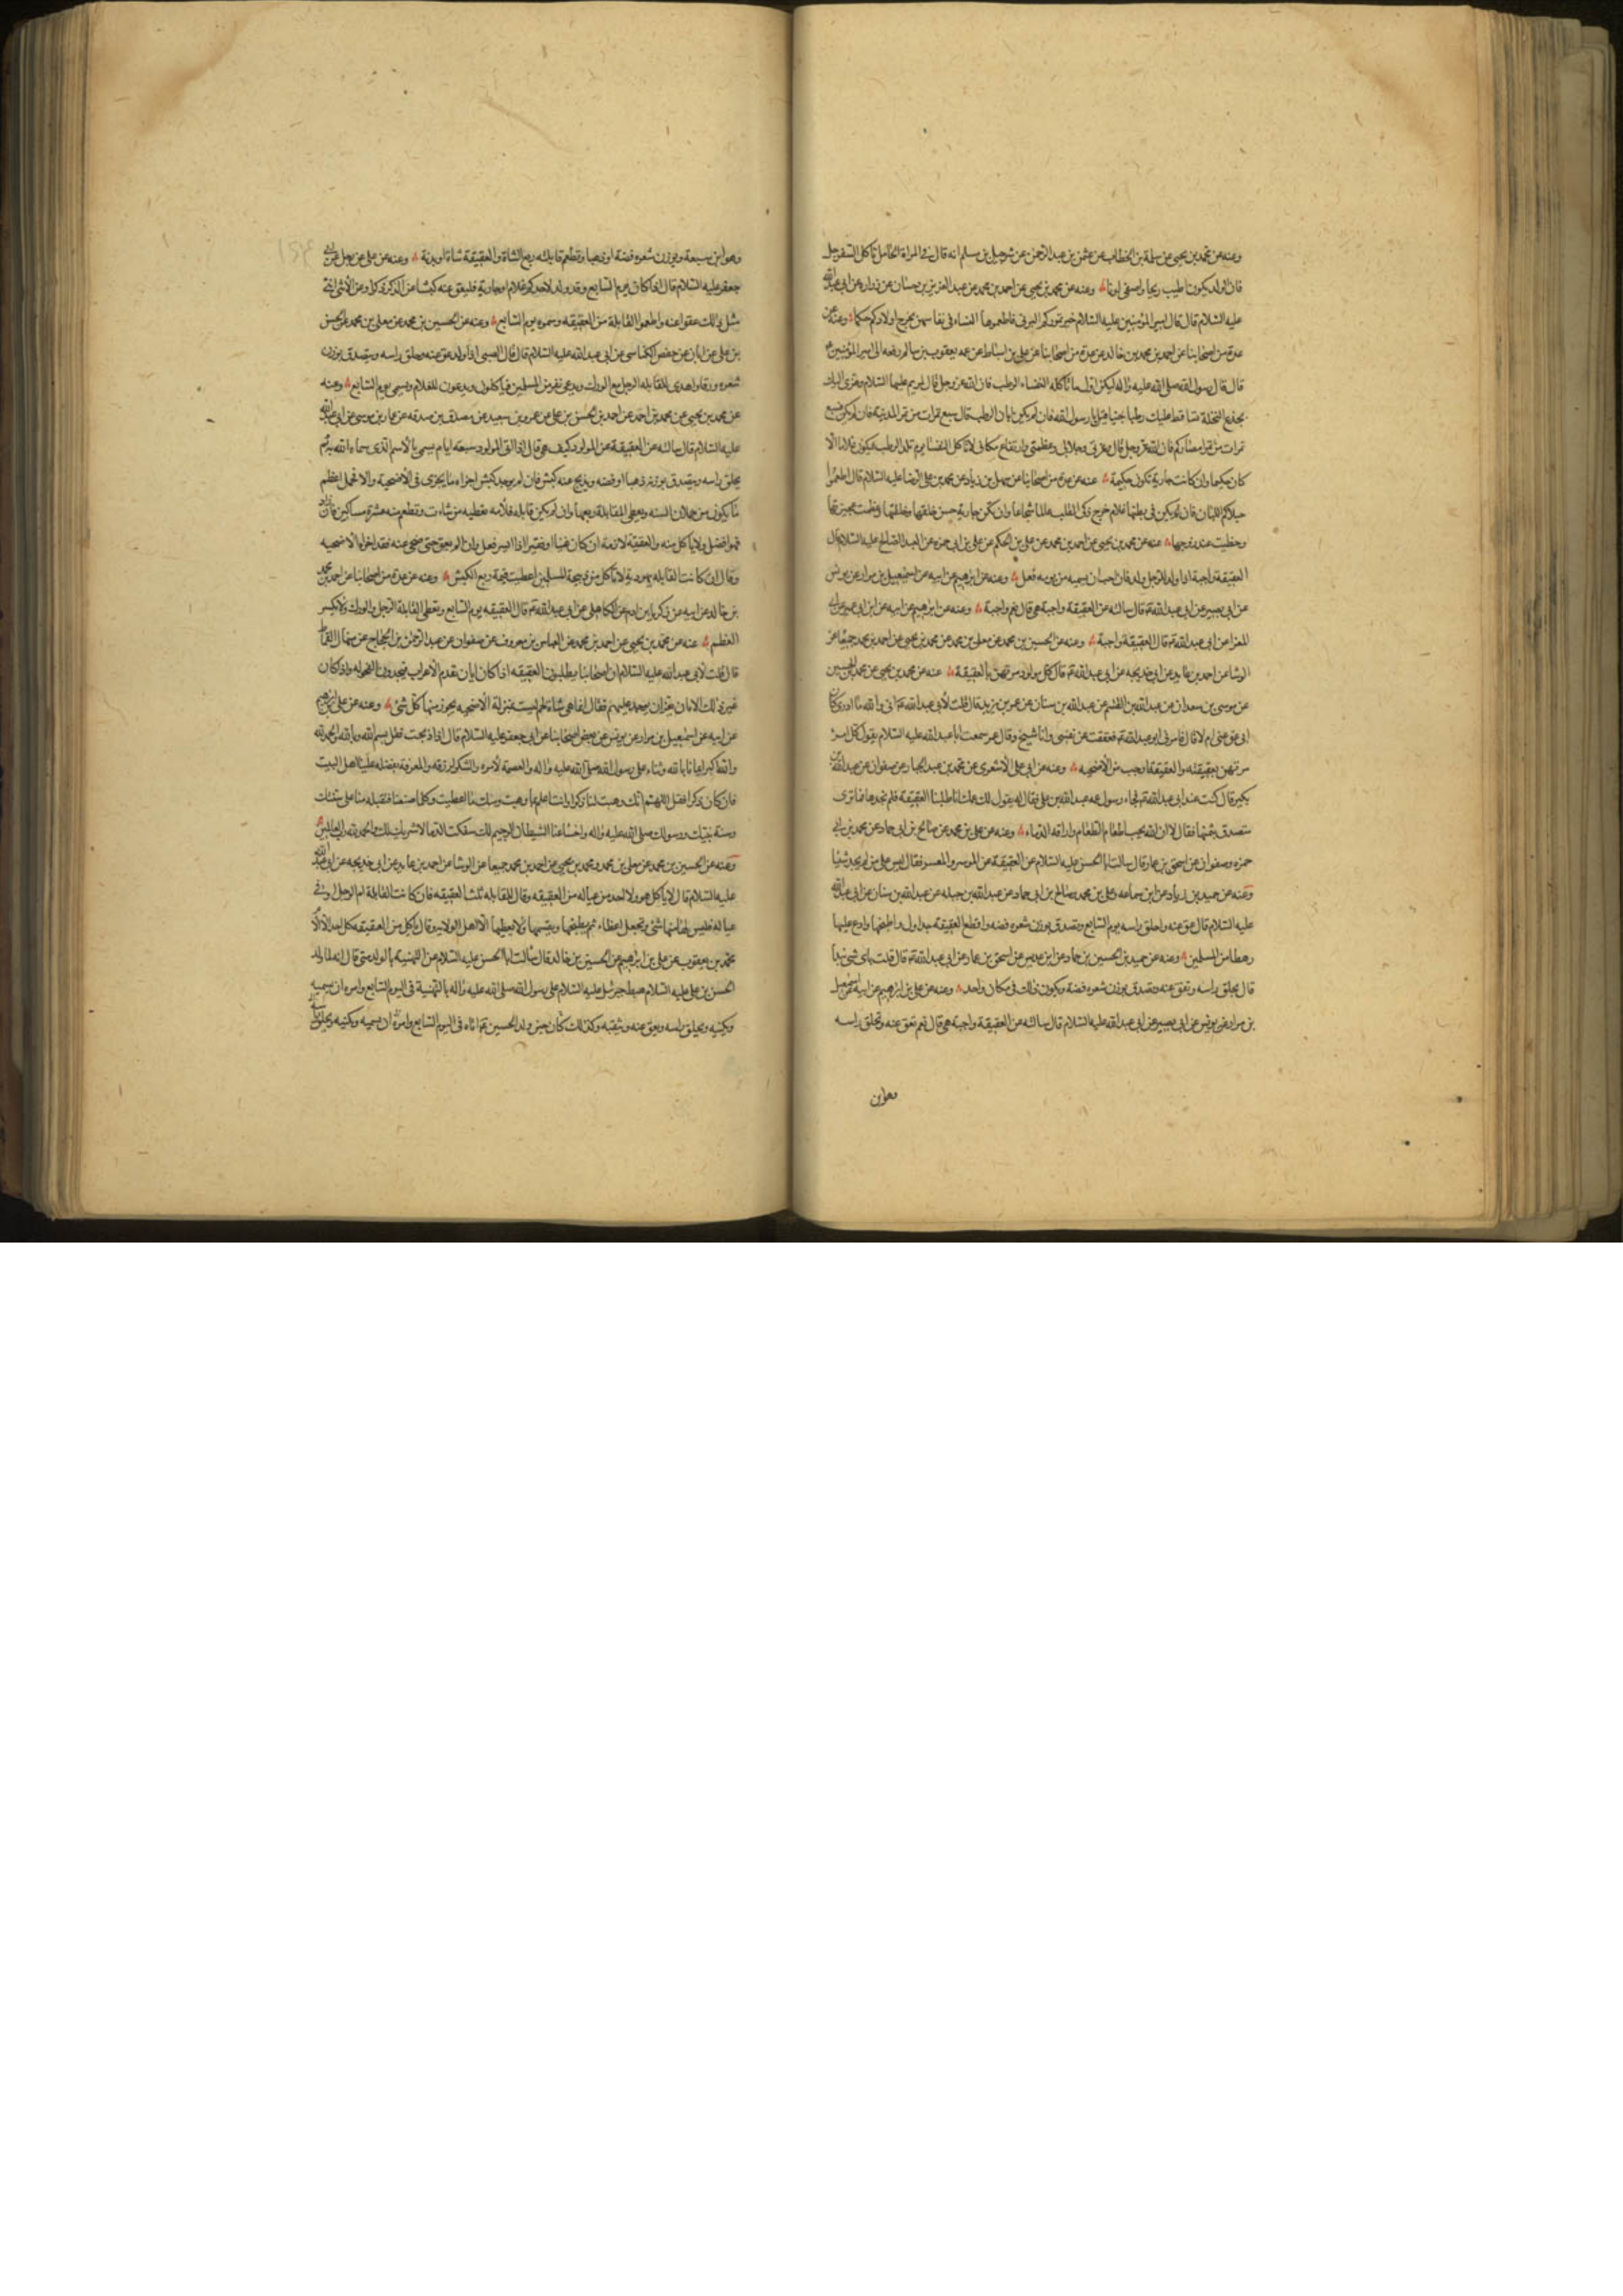 وعنه عن محمد بن يحيى عن سلمة بن الخطاب عن عثمن بن عبد الرحمن عن شرحبيل بن مسلم انه قال في المراة الحامل تاكل السفرجل
فان الولد يكون اطيب ريحا واصفى لونا وعنه عن محمد بن يحيى عن احمد بن محمد عن عبد العزيز بن حسان عن زرارة عن ابي عبد الله
عليه السلام قال قال امير المؤمنين عليه السلام خير تموركم البرني فاطعموها النساء في نفاسهن يخرج اولادكم حكما وعنه عن
عدة من اصحابنا عن احمد بن محمد بن خالد عن عدة من اصحابنا عن علي بن اسباط عن عمه يعقوب بن سالم رفعه الى امير المؤمنين
قال قال رسول الله صلى الله عليه واله ليكن اول ما تاكله النفساء الرطب فان الله عز وجل قال لمريم عليها السلام وهزي اليك
بجذع النخلة تساقط عليك رطبا جنيا قيل يا رسول الله فان لم يكن ابان الرطب قال سبع تمرات من تمر المدينه فان لم يكن فسبع
تمرات من تمر امصاركم فان الله عز وجل قال وعزتي وجلالي وعظمتي وارتفاع مكاني لا تاكل النفسا يوم تلد الرطب فيكون غلاما الا
كان حكيما وان كانت جارية تكون حكيمة عنه عن عدة من اصحابنا عن سهل بن زياد عن محمد بن علي الرضا عليه السلام قال اطعموا
حبالاكم اللبان فان يكن في بطنها غلام خرج ذكي القلب عالما شجاعا وان تكن جارية حسن خلقها وخلقها وعظمت عجيزتها
وحظيت عند زوجها عنه عن محمد بن يحيى عن احمد بن محمد عن علي بن الحكم عن علي بن ابي حمزه عن العبد الصالح عليه السلام قال
العقيقة واجبة اذا ولد للرجل ولد فان احب ان يسميه من يومه فعل وعنه عن ابرهيم عن ابيه عن اسمعيل بن مرار عن يونس
عن ابي بصير عن ابي عبد الله قال سالته عن العقيقة واجبة هي قال نعم واجبة وعنه عن ابرهيم عن ابيه عن ابن ابي عمير عن ابي
المغرا عن ابي عبد الله قال العقيقة واجبة وعنه عن الحسين بن محمد عن معلى بن محمد عن محمد بن يحيى عن احمد بن محمد جميعا عن
الوشا عن احمد بن عايد عن ابي خديجه عن ابي عبد الله قال كل مولود مرتهن بالعقيقة عنه عن محمد بن يحيى عن محمد بن الحسين
عن موسى بن سعدان عن عبد الله بن القسم عن عبد الله بن سنان عن عمر بن يزيد قال قلت لابي عبد الله اني والله ما ادري كان
ابي عق عني ام لا قال فامرني ابو عبد الله فعققت عن نفسي وانا شيخ وقال عمر سمعت ابا عبد الله عليه السلام يقول كل امرئ
مرتهن بعقيقته والعقيقة اوجب من الاضحيه وعنه عن ابي علي الاشعري عن محمد بن عبد الجبار عن صفوان عن عبد الله بن
بكير قال كنت عند ابي عبد الله فجاء رسول عمه عبد الله بن علي فقال له يقول لك عمك انا طلبنا العقيقة فلم نجدها فما ترى
نتصدق بثمنها فقال لا ان الله يحب اطعام الطعام واراقة الدماء وعنه عن علي بن محمد عن صالح بن ابي حماد عن محمد بن ابي
حمزه وصفوان عن اسحق بن عمار قال سالت ابا الحسن عليه السلام عن العقيقة عن الموسر والمعسر فقال ليس على من لم يجد شيئا
وعنه عن حميد بن زياد عن ابن سماعه وعلي بن محمد صالح بن ابي حماد عن عبد الله بن جبله عن عبد الله بن سنان عن ابي عبد الله
عليه السلام قال عق عنه واحلق راسه يوم السابع وتصدق بوزن شعره فضه واقطع العقيقة جداول واطبخها وادع عليها
رهطا من المسلمين وعنه عن حميد بن الحسين بن حماد عن عديس عن اسحق بن عمار عن ابي عبد الله قال قلت باى شي نبدأ
قال يحلق راسه وتعق عنه وتصدق بوزن شعره فضة ويكون ذلك في مكان واحد وعنه عن علي بن ابرهيم عن ابيه عن اسمعيل
بن مرار عن يونس عن ابي بصير عن ابي عبد الله عليه السلام قال سالته عن العقيقة واجبة هي قال نعم تعق عنه وتحلق راسه
وهو ابن سبعة ويوزن شعره فضة او ذهبا وتطعم قابلته ربع الشاة والعقيقة شاة او بدنة وعنه عن علي عن رجل عن ابي
جعفر عليه السلام قال اذا كان يوم السابع وقد ولد لاحدكم غلام او جارية فليعق عنه كبشا عن الذكر ذكرا وعن الانثى
مثل ذلك عقوا عنه واطعموا القابلة من العقيقه وسموه يوم السابع وعنه عن الحسين بن محمد عن معلى بن محمد عن الحسن
بن علي عن ابان عن حفص الكناسي عن ابي عبد الله عليه السلام قال قال الصبي اذا ولد عق عنه وحلق راسه وتصدق بوزن
شعره ورقا واهدى للقابله الرجل مع الورك ويدعى نفر من المسلمين فياكلون ويدعون للغلام ويسمى يوم السابع وعنه
عن محمد بن يحيى عن محمد بن احمد عن احمد بن الحسن بن علي عن عمرو بن سعيد عن مصدق بن صدقه عن عمار بن موسى عن ابي عبد الله
عليه السلام قال سالته عن العقيقة عن المولود كيف هي قال اذا اتى للمولود سبعة ايام يسمى بالاسم الذي سماه الله به ثم
يحلق راسه ويتصدق بوزنه ذهبا او فضه ويذبح عنه كبش فان لم يوجد كبش اجزاه ما يجزى في الاضحية والا فحمل اعظم
ما يكون من حملان السنه ويعطى القابلة ربعها وان لم تكن قابله فلامه تعطيه من شاءت وتطعم منه عشرة مساكين فان زاد
فهو افضل ولا ياكل منه والعقيقة لازمة ان كان غنيا او فقيرا اذا ايسر فعل وان لم يعق حتى ضحى عنه فقد اجزاه الاضحيه
وقال ان كانت القابله يهودية لا تاكل من ذبيحة المسلمين اعطيت قيمة ربع الكبش وعنه عن عدة من اصحابنا عن احمد بن محمد
بن خالد عن ابيه عن زكريا بن ادم عن الكاهلي عن ابي عبد الله قال العقيقه يوم السابع وتعطى القابلة الرجل والورك ولا يكسر
العظم عنه عن محمد بن يحيى عن احمد بن محمد عن العباس بن معروف عن صفوان عن عبد الرحمن بن الحجاج عن منهال القماط
قال قلت لابي عبد الله عليه السلام ان اصحابنا يطلبون العقيقه اذا كان ابان تقدم الاعراب فيجدون الفحوله واذا كان
غير ذلك الابان يعز عليهم فقال انما هي شاة لحم ليست بمنزلة الاضحيه يجوز منها كل شئ وعنه عن علي بن ابرهيم
عن ابيه عن اسمعيل بن مرار عن يونس عن بعض اصحابنا عن ابي جعفر عليه السلام قال اذا ذبحت فقل بسم الله وبالله والحمد لله
والله اكبر ايمانا بالله وثناء على رسول الله صلى الله عليه واله والعصمة لامره والشكر لرزقه والمعرفة بفضله علينا اهل البيت
فان كان ذكرا فقل اللهم انك وهبت لنا ذكرا وانت اعلم بما وهبت ومنك ما اعطيت وكلما صنعنا فتقبله منا على سنتك
وسنة نبيك ورسولك صلى الله عليه واله واخسا عنا الشيطان الرجيم لك سفكت الدماء لا شريك لك والحمد لله رب العالمين
وعنه عن الحسين بن محمد عن معلى بن محمد ومحمد بن يحيى عن احمد بن محمد جميعا عن الوشا عن احمد بن عايد عن ابي خديجه عن ابي عبد الله
عليه السلام قال لا ياكل هو ولا احد من عياله من العقيقه وقال للقابله ثلث العقيقه فان كانت القابلة ام الرجل او في
عياله فليس لها منها شئ وتجعل اعضاء ثم يطبخها ويقسمها ولا يعطيها الا اهل الولاية وقال ياكل من العقيقه كل احد الا الام
محمد بن يعقوب عن علي بن ابرهيم عن الحسين بن خالد قال سالت ابا الحسن عليه السلام عن التهنية بالولد متى قال انه لما ولد
الحسن بن علي عليه السلام هبط جبرئيل عليه السلام على رسول الله صلى الله عليه واله بالتهنية في اليوم السابع وامره ان يسميه
ويكنيه ويحلق راسه ويعق عنه ويثقبه وكذلك كان حين ولد الحسين اتاه في اليوم السابع وامره ان يسميه ويكنيه ويحلق راسه
وهو ابن